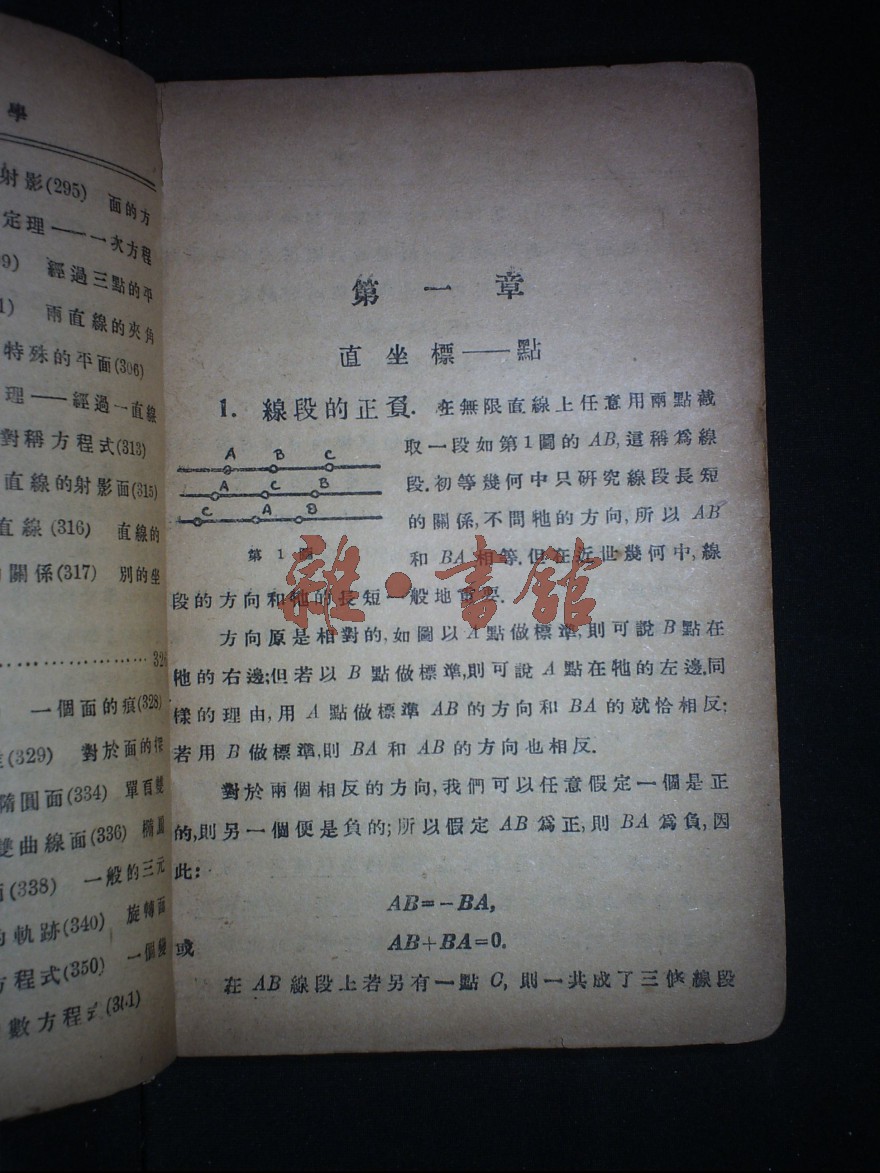 學
射影(295) 面的方
定理——一次方程
9) 經過三點的平
1) 兩直線的夾角
特殊的平面(306)
理——經過一直線
對稱方程式(313)
直線的射影面(315)
直線(316) 直線的
關係(317) 別的坐
一個面的痕(328)
(329) 對於面的
隋圓面(334) 單頁雙
雙曲線面(336)
(338) 一般的三元
軌跡(340) 旋轉面
方程式(350) 一個
數方程式(361)
第一章
直坐標——點
1. 線段的正負. 在無限直線上任意用兩點截
取一段如第1圖的 AB, 這稱爲線
段.初等幾何中只研究線段長短
的關係,不問牠的方向,所以 AB
和 BA 相等.但在近世幾何中,線
A B C
A C B
C A B
第 1 圖
段的方向和牠的長短一般地重要.
方向原是相對的,如圖以 A 點做標準,則可說 B 點在
牠的右邊;但若以 B 點做標準,則可說 A 點在牠的左邊.同
樣的理由,用 A 點做標準 AB 的方向和 BA 的就恰相反;
若用 B 做標準,則 BA 和 AB 的方向也相反.
對於兩個相反的方向,我們可以任意假定一個是正
的,則另一個便是負的;所以假定 AB 爲正,則 BA 爲負,因
此:
AB=-BA,
或 AB+BA=0.
在 AB 線段上若另有一點 C, 則一共成了三條線段
雜·書館